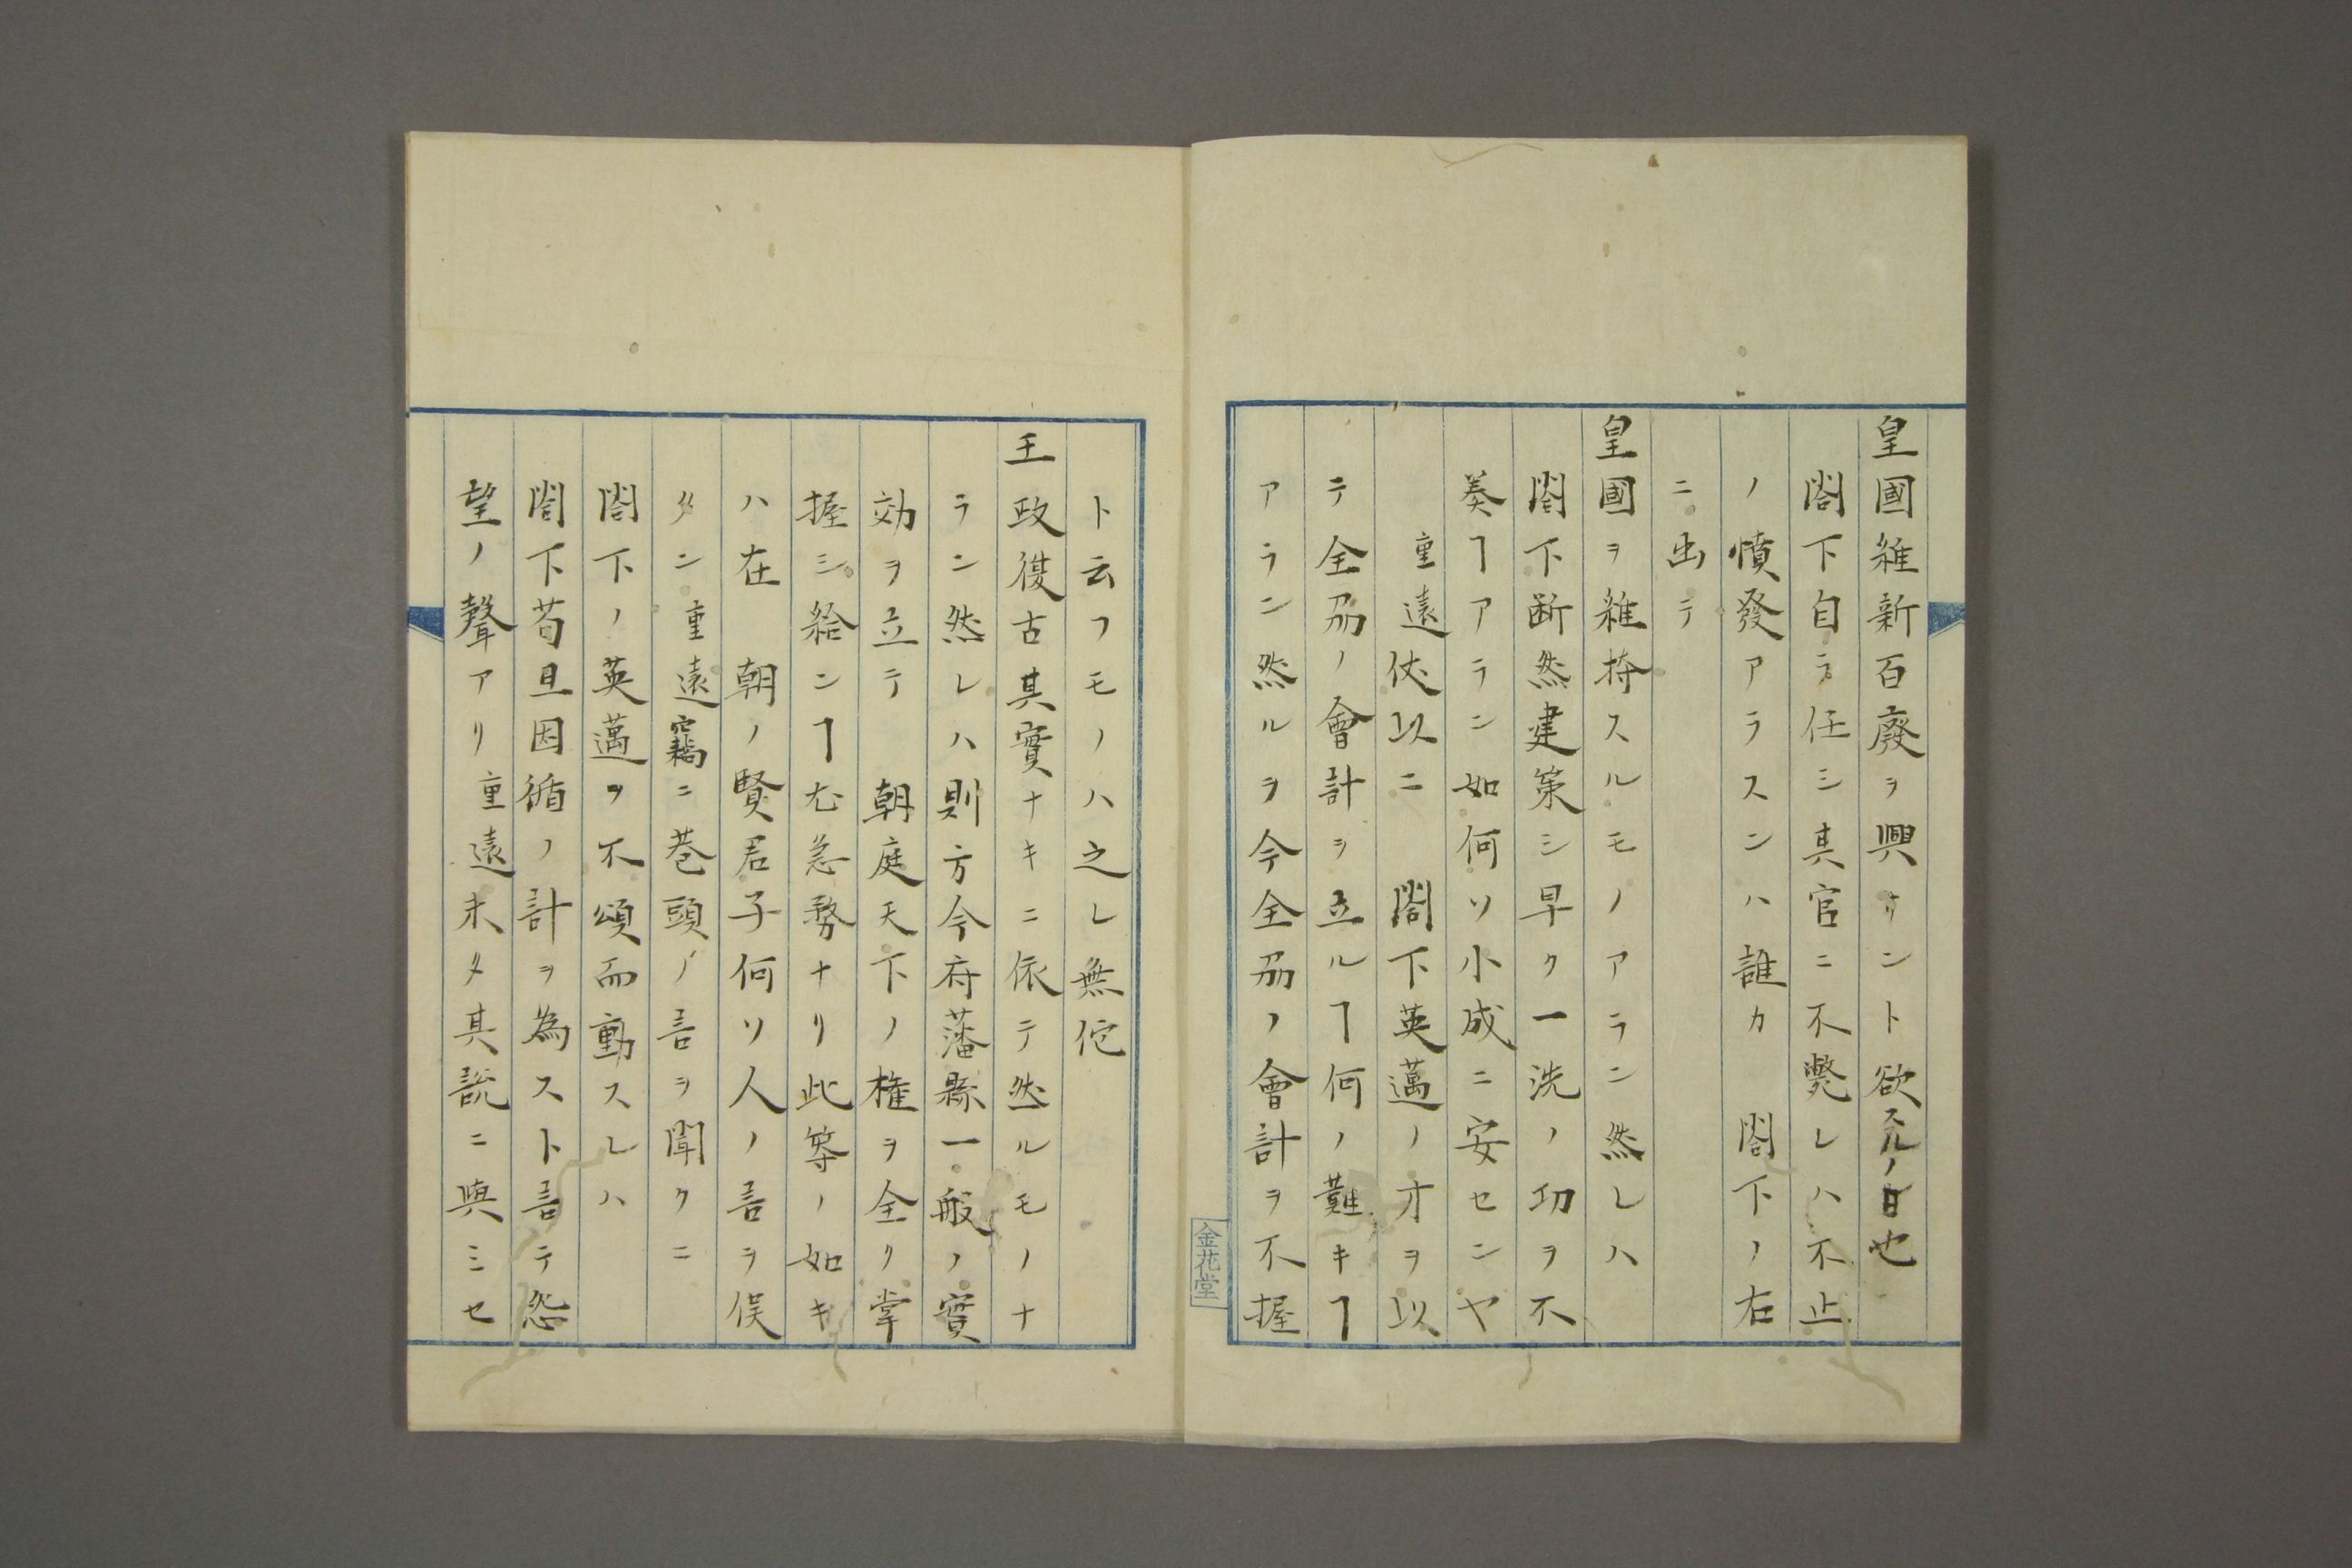 皇國維新百廢ヲ興サント欲スルノ日也
閣下自ラ任シ其官ニ不斃レハ不止
ノ憤發アラスンハ誰カ　閣下ノ右
ニ出テ
皇國ヲ維持スルモノアラン然レハ
閣下断然建策シ早ク一洗ノ功ヲ不
奏ヿアラン如何ソ小成ニ安センヤ
重遠伏以ニ　閣下英邁ノ才ヲ以
テ全刕ノ會計ヲ立ルヿ何ノ難キヿ
アラン然ルヲ今全刕ノ會計ヲ不握
金花堂
ト云フモノハ之レ無佗
王政復古其實ナキニ依テ然ルモノナ
ラン然レハ則方今府藩縣一般ノ實
効ヲ立テ　朝庭天下ノ権ヲ全ク掌
握シ給ンヿ尤急務ナリ此等ノ如キ
ハ在　朝ノ賢君子何ソ人ノ言ヲ俟
タン重遠竊ニ巷頭ノ言ヲ聞クニ
閣下ノ英邁ヲ不頌而動スレハ
閣下苟且因循ノ計ヲ為スト言テ怨
望ノ聲アリ重遠未タ其説ニ與ミセ